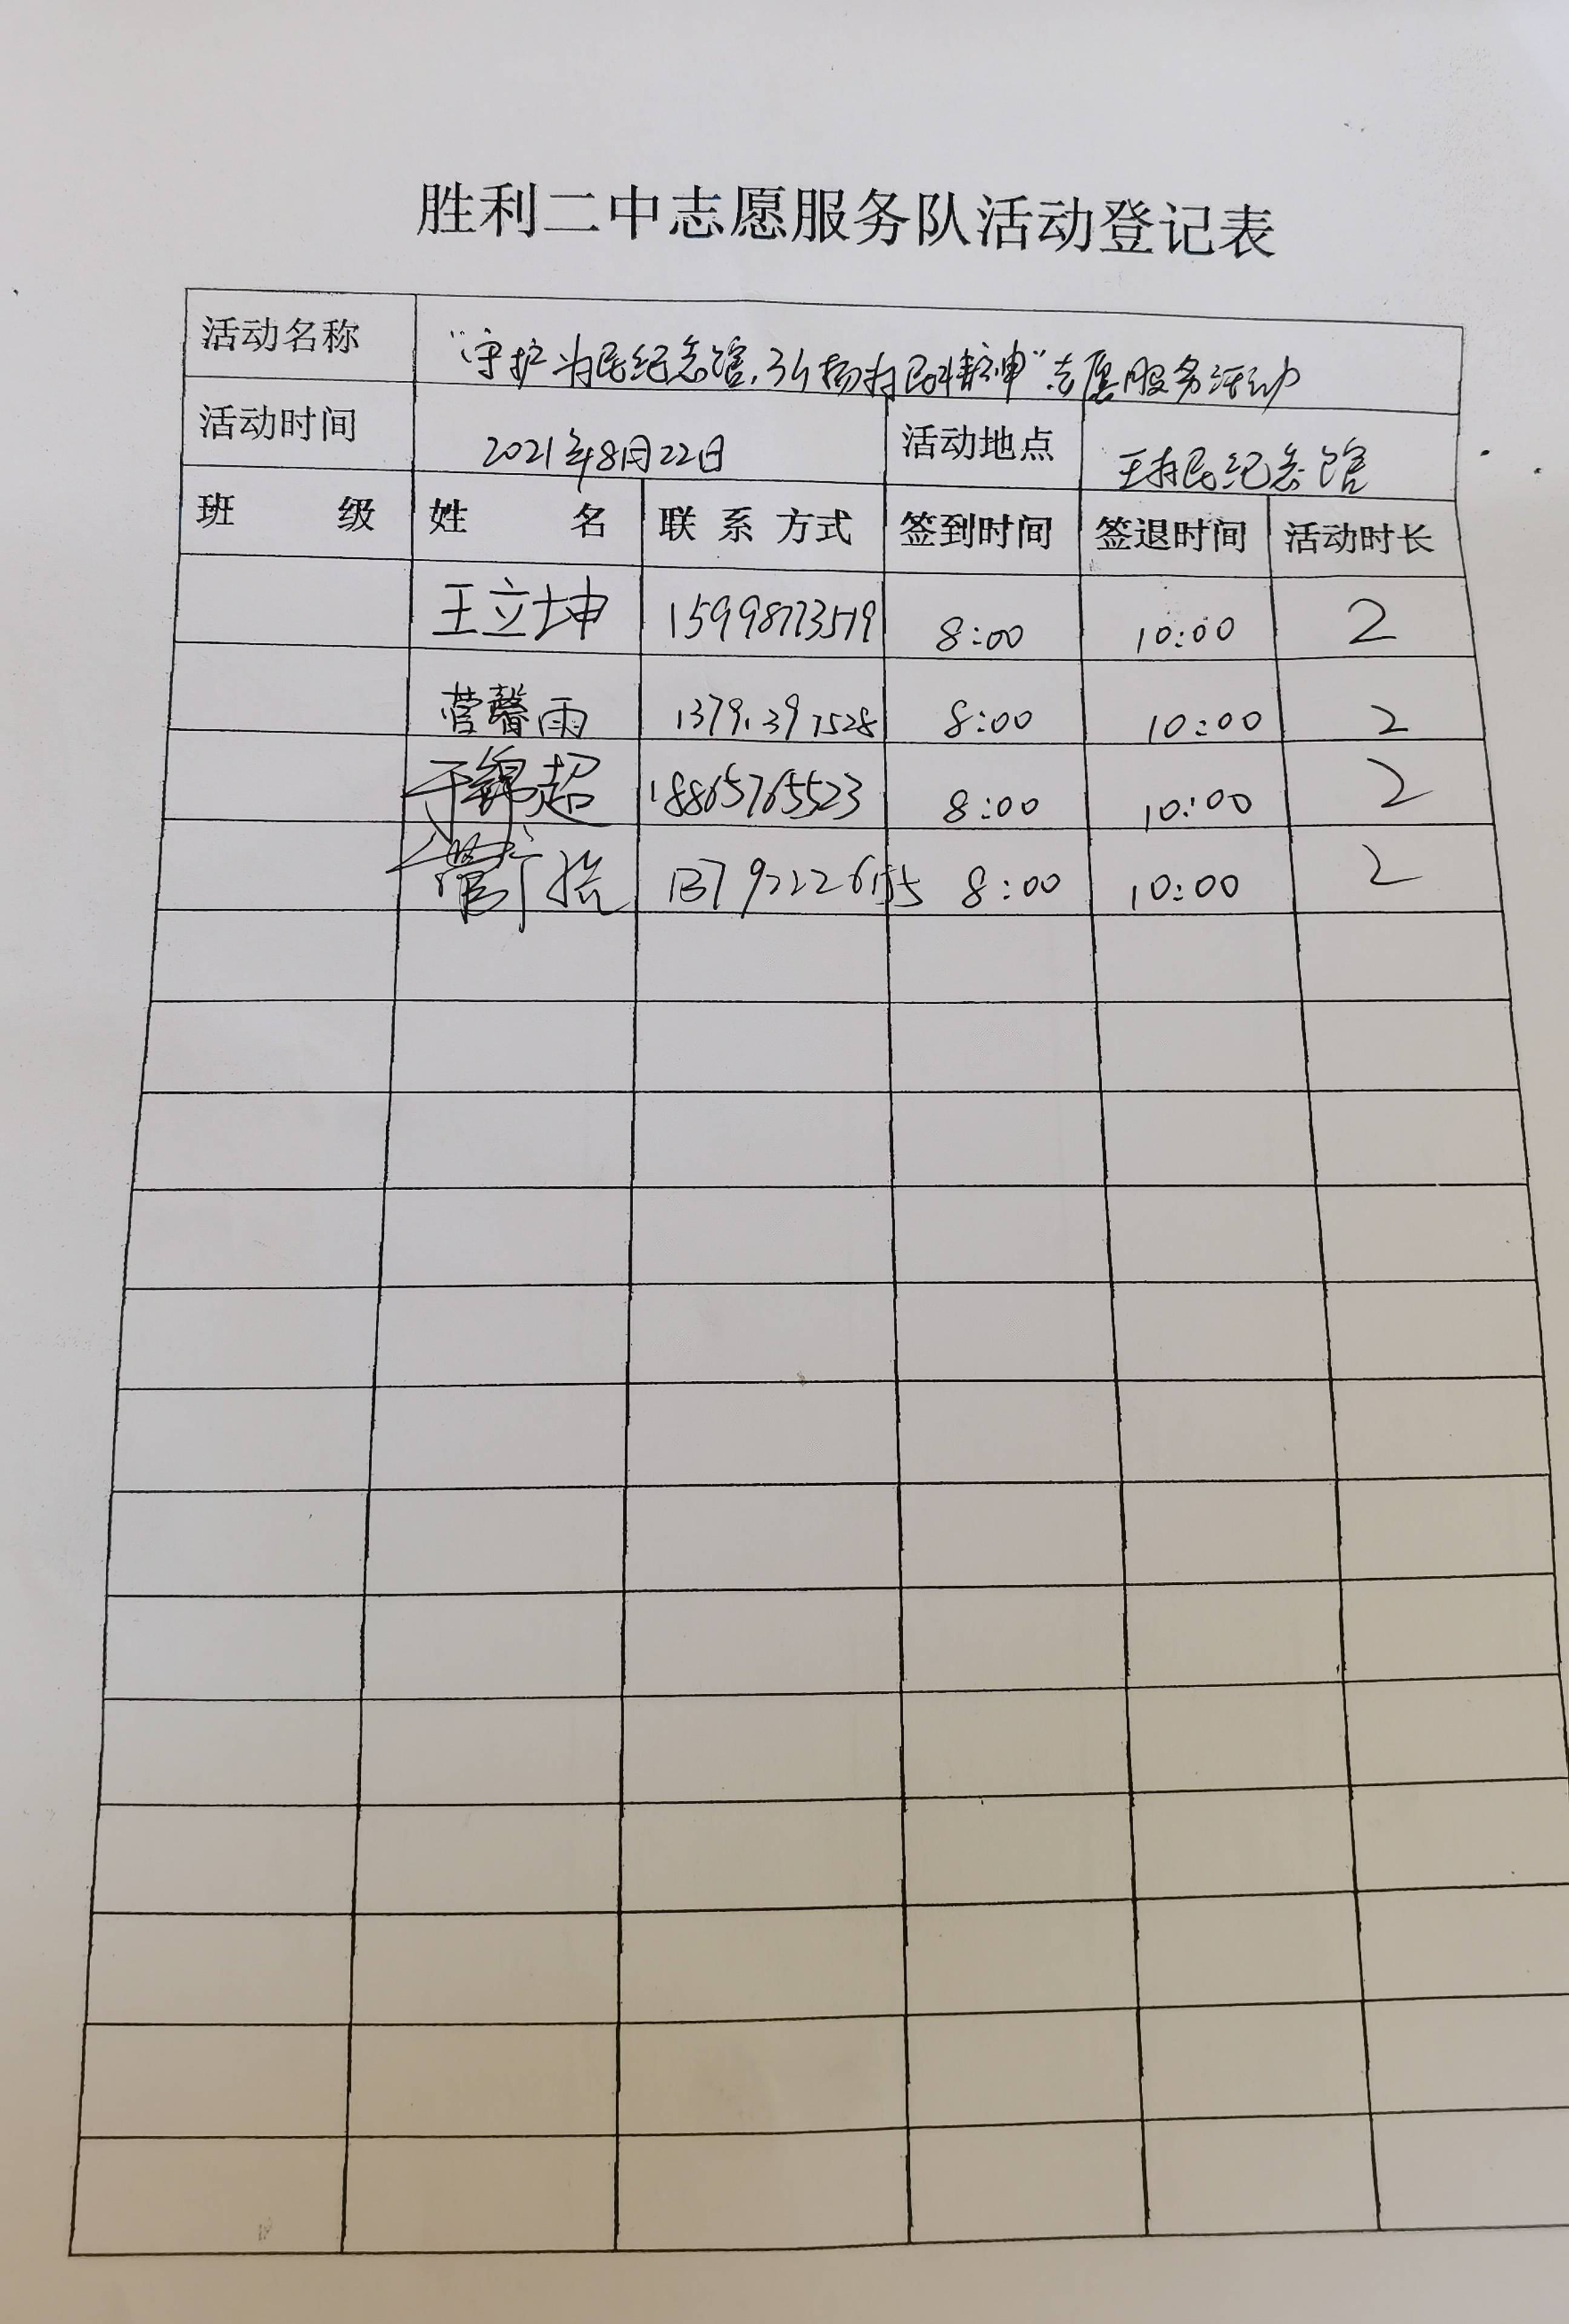 胜利二中志愿服务队活动登记表
活动名称 “守护为民纪念馆,弘扬为民精神”志愿服务活动
活动时间 2021年8月22日 活动地点 王为民纪念馆
班 级 姓 名 联系方式 签到时间 签退时间 活动时长
王立坤 15998773519 8:00 10:00 2
馨雨 8:00 10:00 2
于锦超 18865765523 8:00 10:00 2
8:00 10:00 2